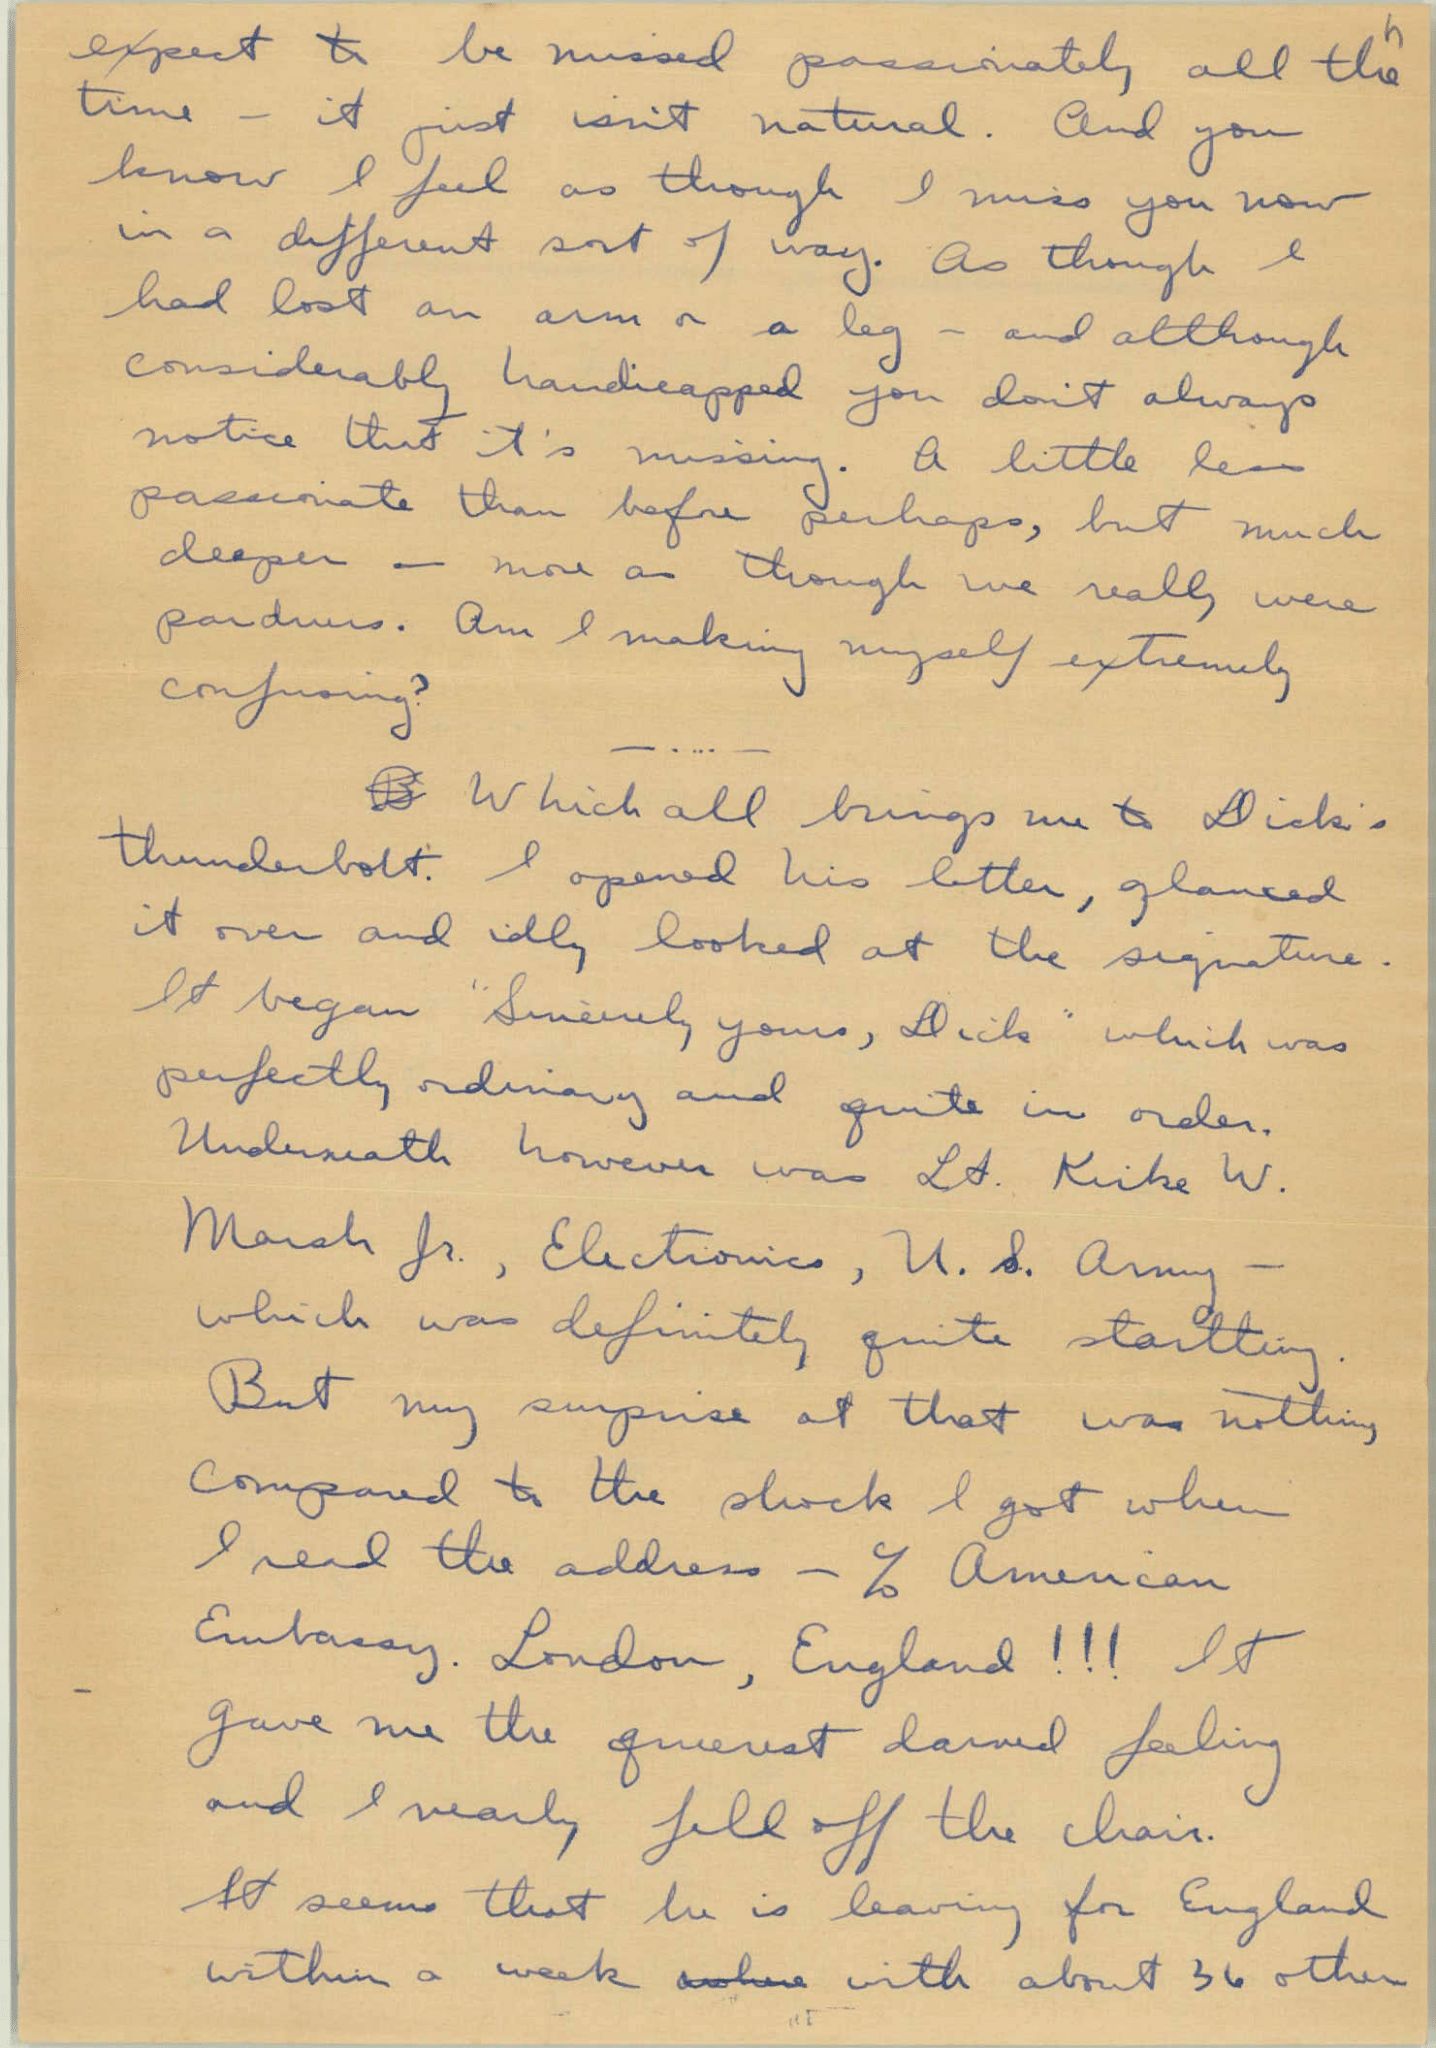 expect to be missed passionately all the
time - it just isn't natural. And you
know I feel as though I miss you now
in a different sort of way. As though I
had lost an arm or a leg - and although
considerably handicapped you don't always
notice that it's missing. A little less
passionate than before perhaps, but much
deeper - more as though we really were
pardners. Am I making myself extremely
confusing?
Which all brings me to Dick's
thunderbolt. I opened his letter, glanced
it over and idly looked at the signature.
It began "Sincerely yours, Dick" which was
perfectly ordinary and quite in order.
Underneath however was Lt. Kirke W.
Marsh Jr., Electronics, U.S. Army -
which was definitely quite startling.
But my surprise at that was nothing
compared to the shock I got when
I read the address - c/o American
Embassy. London, England!!! It
gave me the queerest darned feeling
and I nearly fell off the chair.
It seems that he is leaving for England
within a week with about 36 other